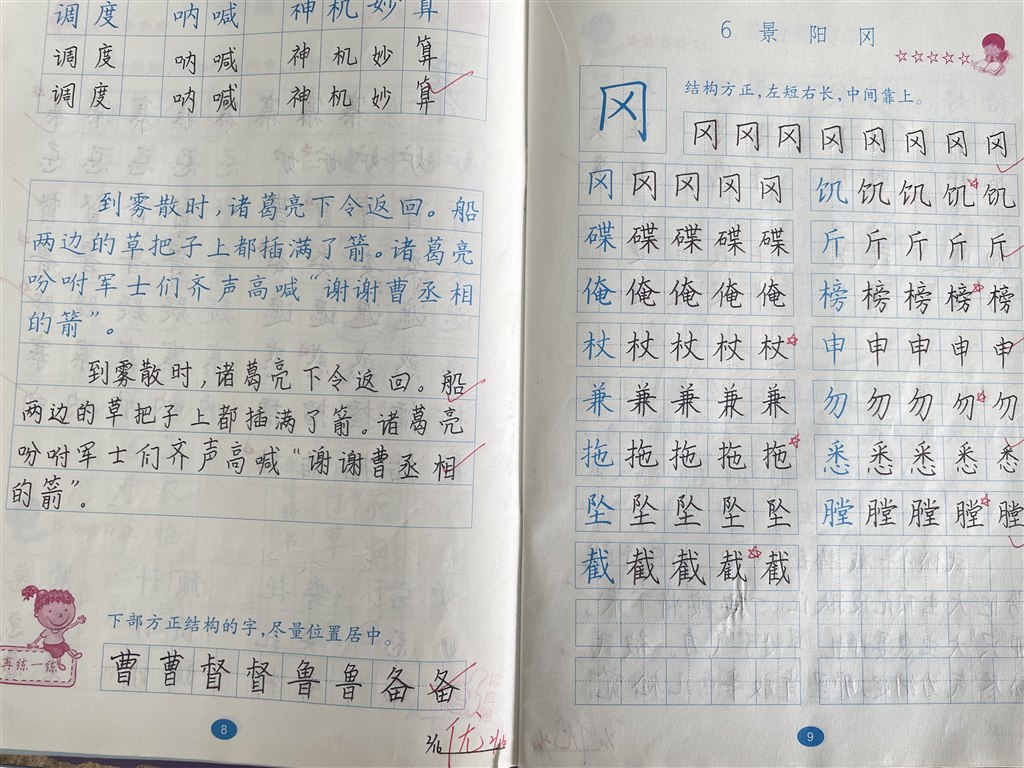 调度 呐喊 神机妙算
调度 呐喊 神机妙算
调度 呐喊 神机妙算
到雾散时,诸葛亮下令返回。船
两边的草把子上都插满了箭。诸葛亮
吩咐军士们齐声高喊“谢谢曹丞相
的箭”。
到雾散时,诸葛亮下令返回。船
两边的草把子上都插满了箭。诸葛亮
吩咐军士们齐声高喊“谢谢曹丞相
的箭”。
再练一练
下部方正结构的字,尽量位置居中。
曹曹督督鲁鲁备备
优
8
6 景阳冈
☆☆☆☆☆
冈
结构方正,左短右长,中间靠上。
冈冈冈冈冈冈冈冈
冈冈冈冈冈 饥饥饥饥饥
碟碟碟碟碟 斤斤斤斤斤
俺俺俺俺俺 榜榜榜榜榜
杖杖杖杖杖 申申申申申
兼兼兼兼兼 勿勿勿勿勿
拖拖拖拖拖 悉悉悉悉悉
坠坠坠坠坠 膛膛膛膛膛
截截截截截
9